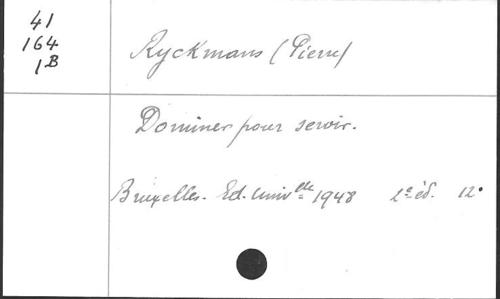 41
164
1B
Ryckmans (Pierre)
Dominer pour servir.
Bruxelles. Ed. Univelle 1948 2e éd. 12°